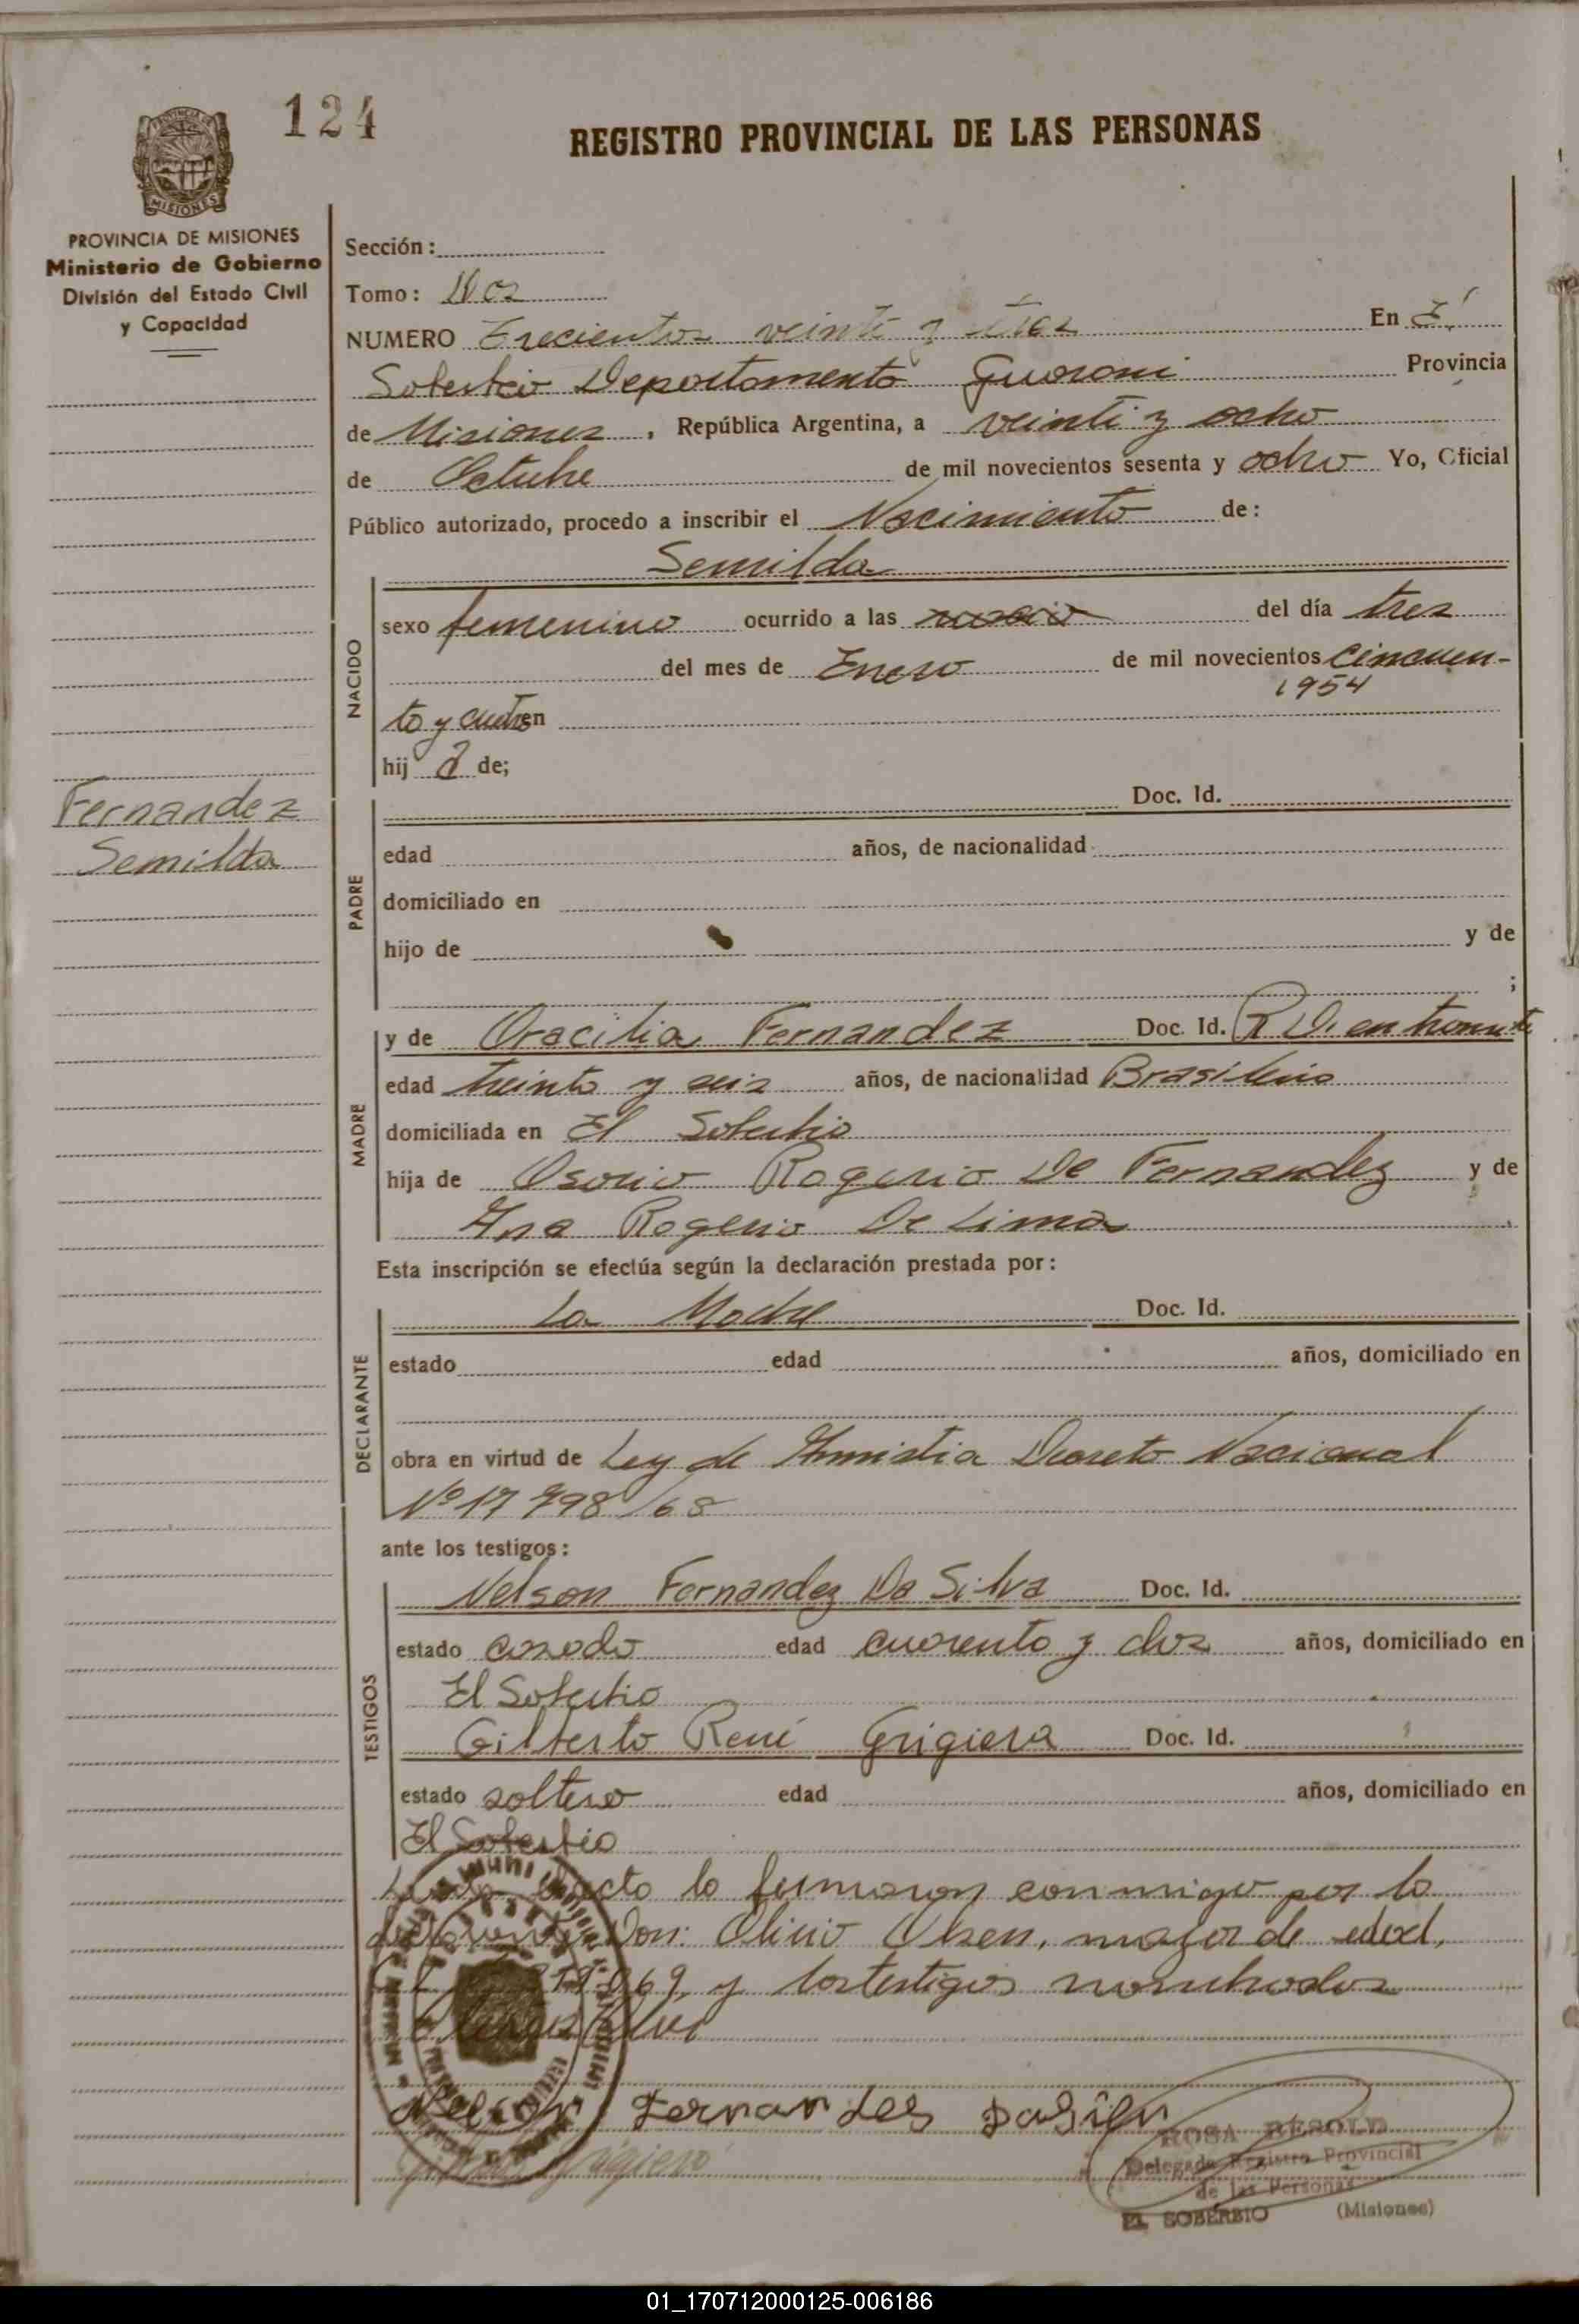 124
REGISTRO PROVINCIAL DE LAS PERSONAS
PROVINCIA DE MISIONES
MISIONES
PROVINCIA DE MISIONES
Ministerio de Gobierno
División del Estado Civil
y Capacidad
Fernandez
Semilda
Sección:
Tomo: Dos
NUMERO Trecientos veinti y tres En El
Soberbio Departamento Guarani Provincia
de Misiones, República Argentina, a veinti y ocho
de Octubre de mil novecientos sesenta y ocho Yo, Oficial
Público autorizado, procedo a inscribir el Nacimiento de:
Semilda
NACIDO
sexo femenino ocurrido a las del día tres
del mes de Enero de mil novecientos cincuen-
1954
ta y cuatro en
hij a de;
PADRE
Doc. Id.
edad años, de nacionalidad
domiciliado en
hijo de y de
;
MADRE
y de Oracilia Fernandez Doc. Id. en tramite
edad treinta y seis años, de nacionalidad Brasileña
domiciliada en El Soberbio
hija de Osorio Rogerio De Fernandez y de
Ana Rogerio De Lima
Esta inscripción se efectúa según la declaración prestada por:
DECLARANTE
La Madre Doc. Id.
estado edad años, domiciliado en
obra en virtud de Ley de Amnistia Decreto Nacional
Nº 17798/68
ante los testigos:
TESTIGOS
Nelson Fernandez Da Silva Doc. Id.
estado casado edad cuarenta y dos años, domiciliado en
El Soberbio
Gilberto René Grigiera Doc. Id.
estado soltero edad años, domiciliado en
El Soberbio
acta la firmaron conmigo por la
Don: Olicio Olsen, mayor de edad,
969, y los testigos nombrados
Nelson Fernandes Dasilva
ROSA RESOLD
Delegada Registro Provincial
de las Personas
EL SOBERBIO (Misiones)
01_170712000125-006186